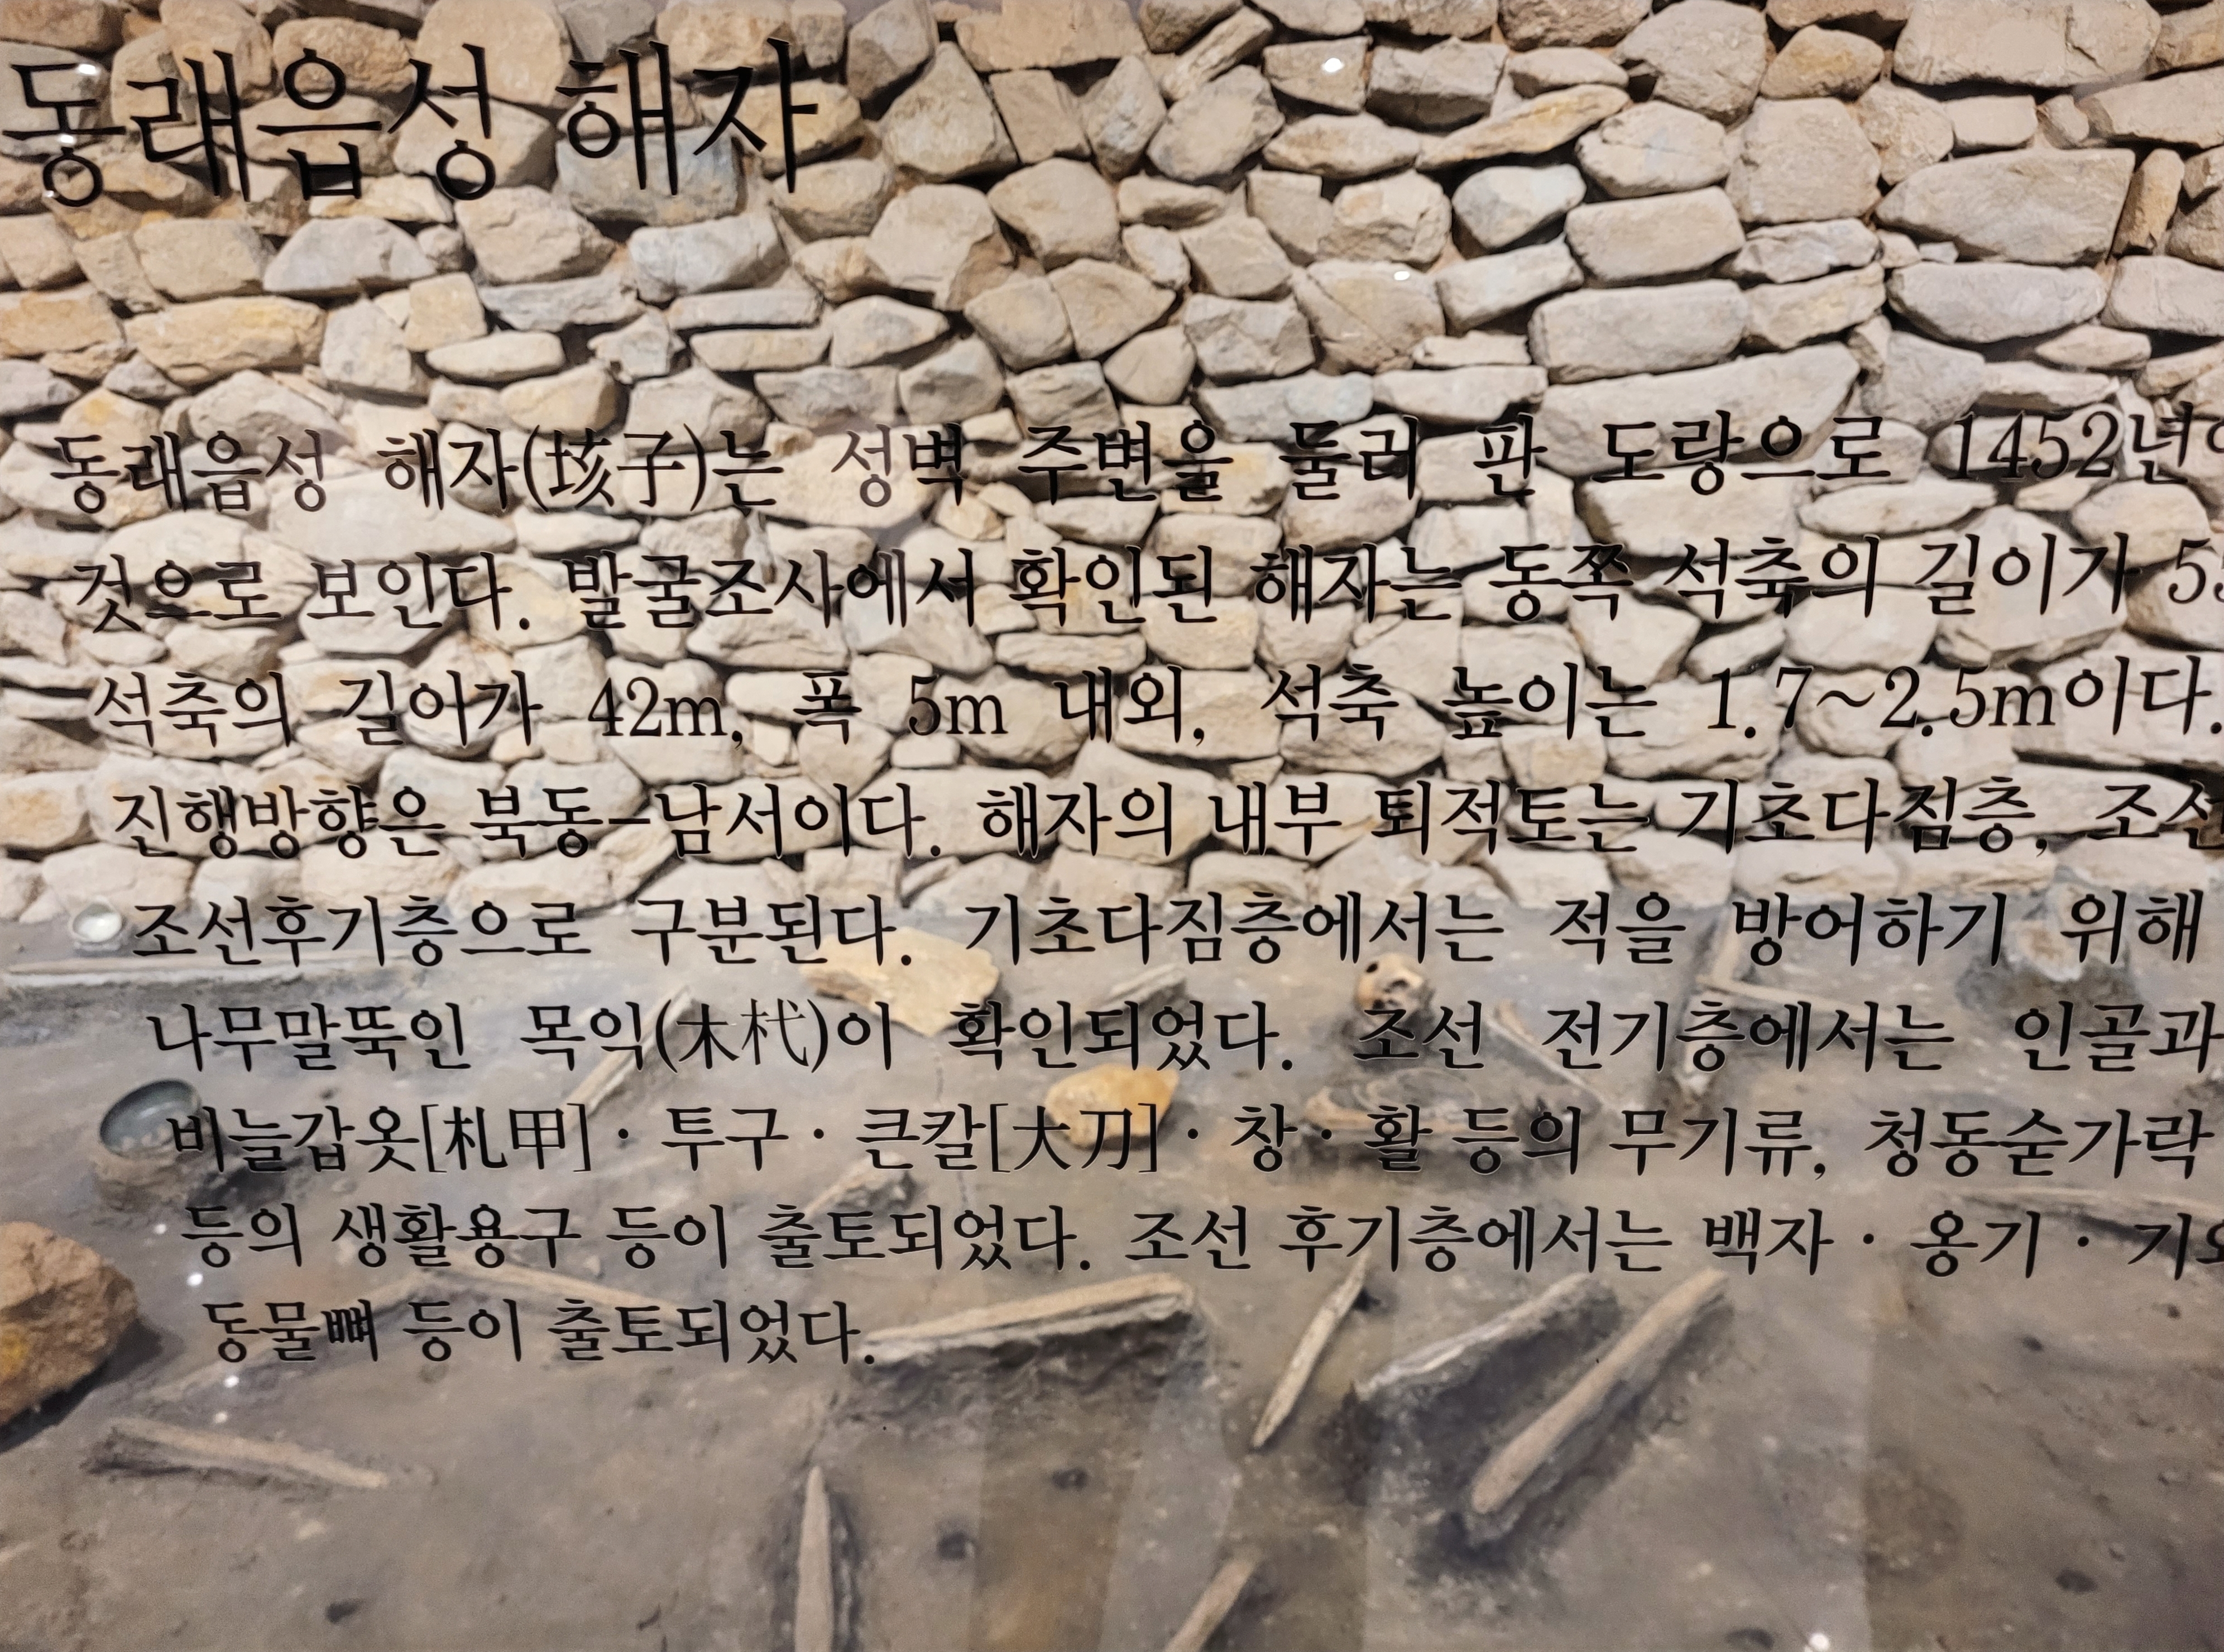 동래읍성 해자
동래읍성 해자(垓子)는 성벽 주변을 둘러 판 도랑으로 1452년
것으로 보인다. 발굴조사에서 확인된 해자는 동쪽 석축의 길이가
석축의 길이가 42m, 폭 5m 내외, 석축 높이는 1.7~2.5m이다.
진행방향은 북동-남서이다. 해자의 내부 퇴적토는 기초다짐층, 조선
조선후기층으로 구분된다. 기초다짐층에서는 적을 방어하기 위해
나무말뚝인 목익(木杙)이 확인되었다. 조선 전기층에서는 인골과
비늘갑옷[札甲] · 투구 · 큰칼[大刀] · 창 · 활 등의 무기류, 청동숟가락
등의 생활용구 등이 출토되었다. 조선 후기층에서는 백자 · 옹기 ·
동물뼈 등이 출토되었다.